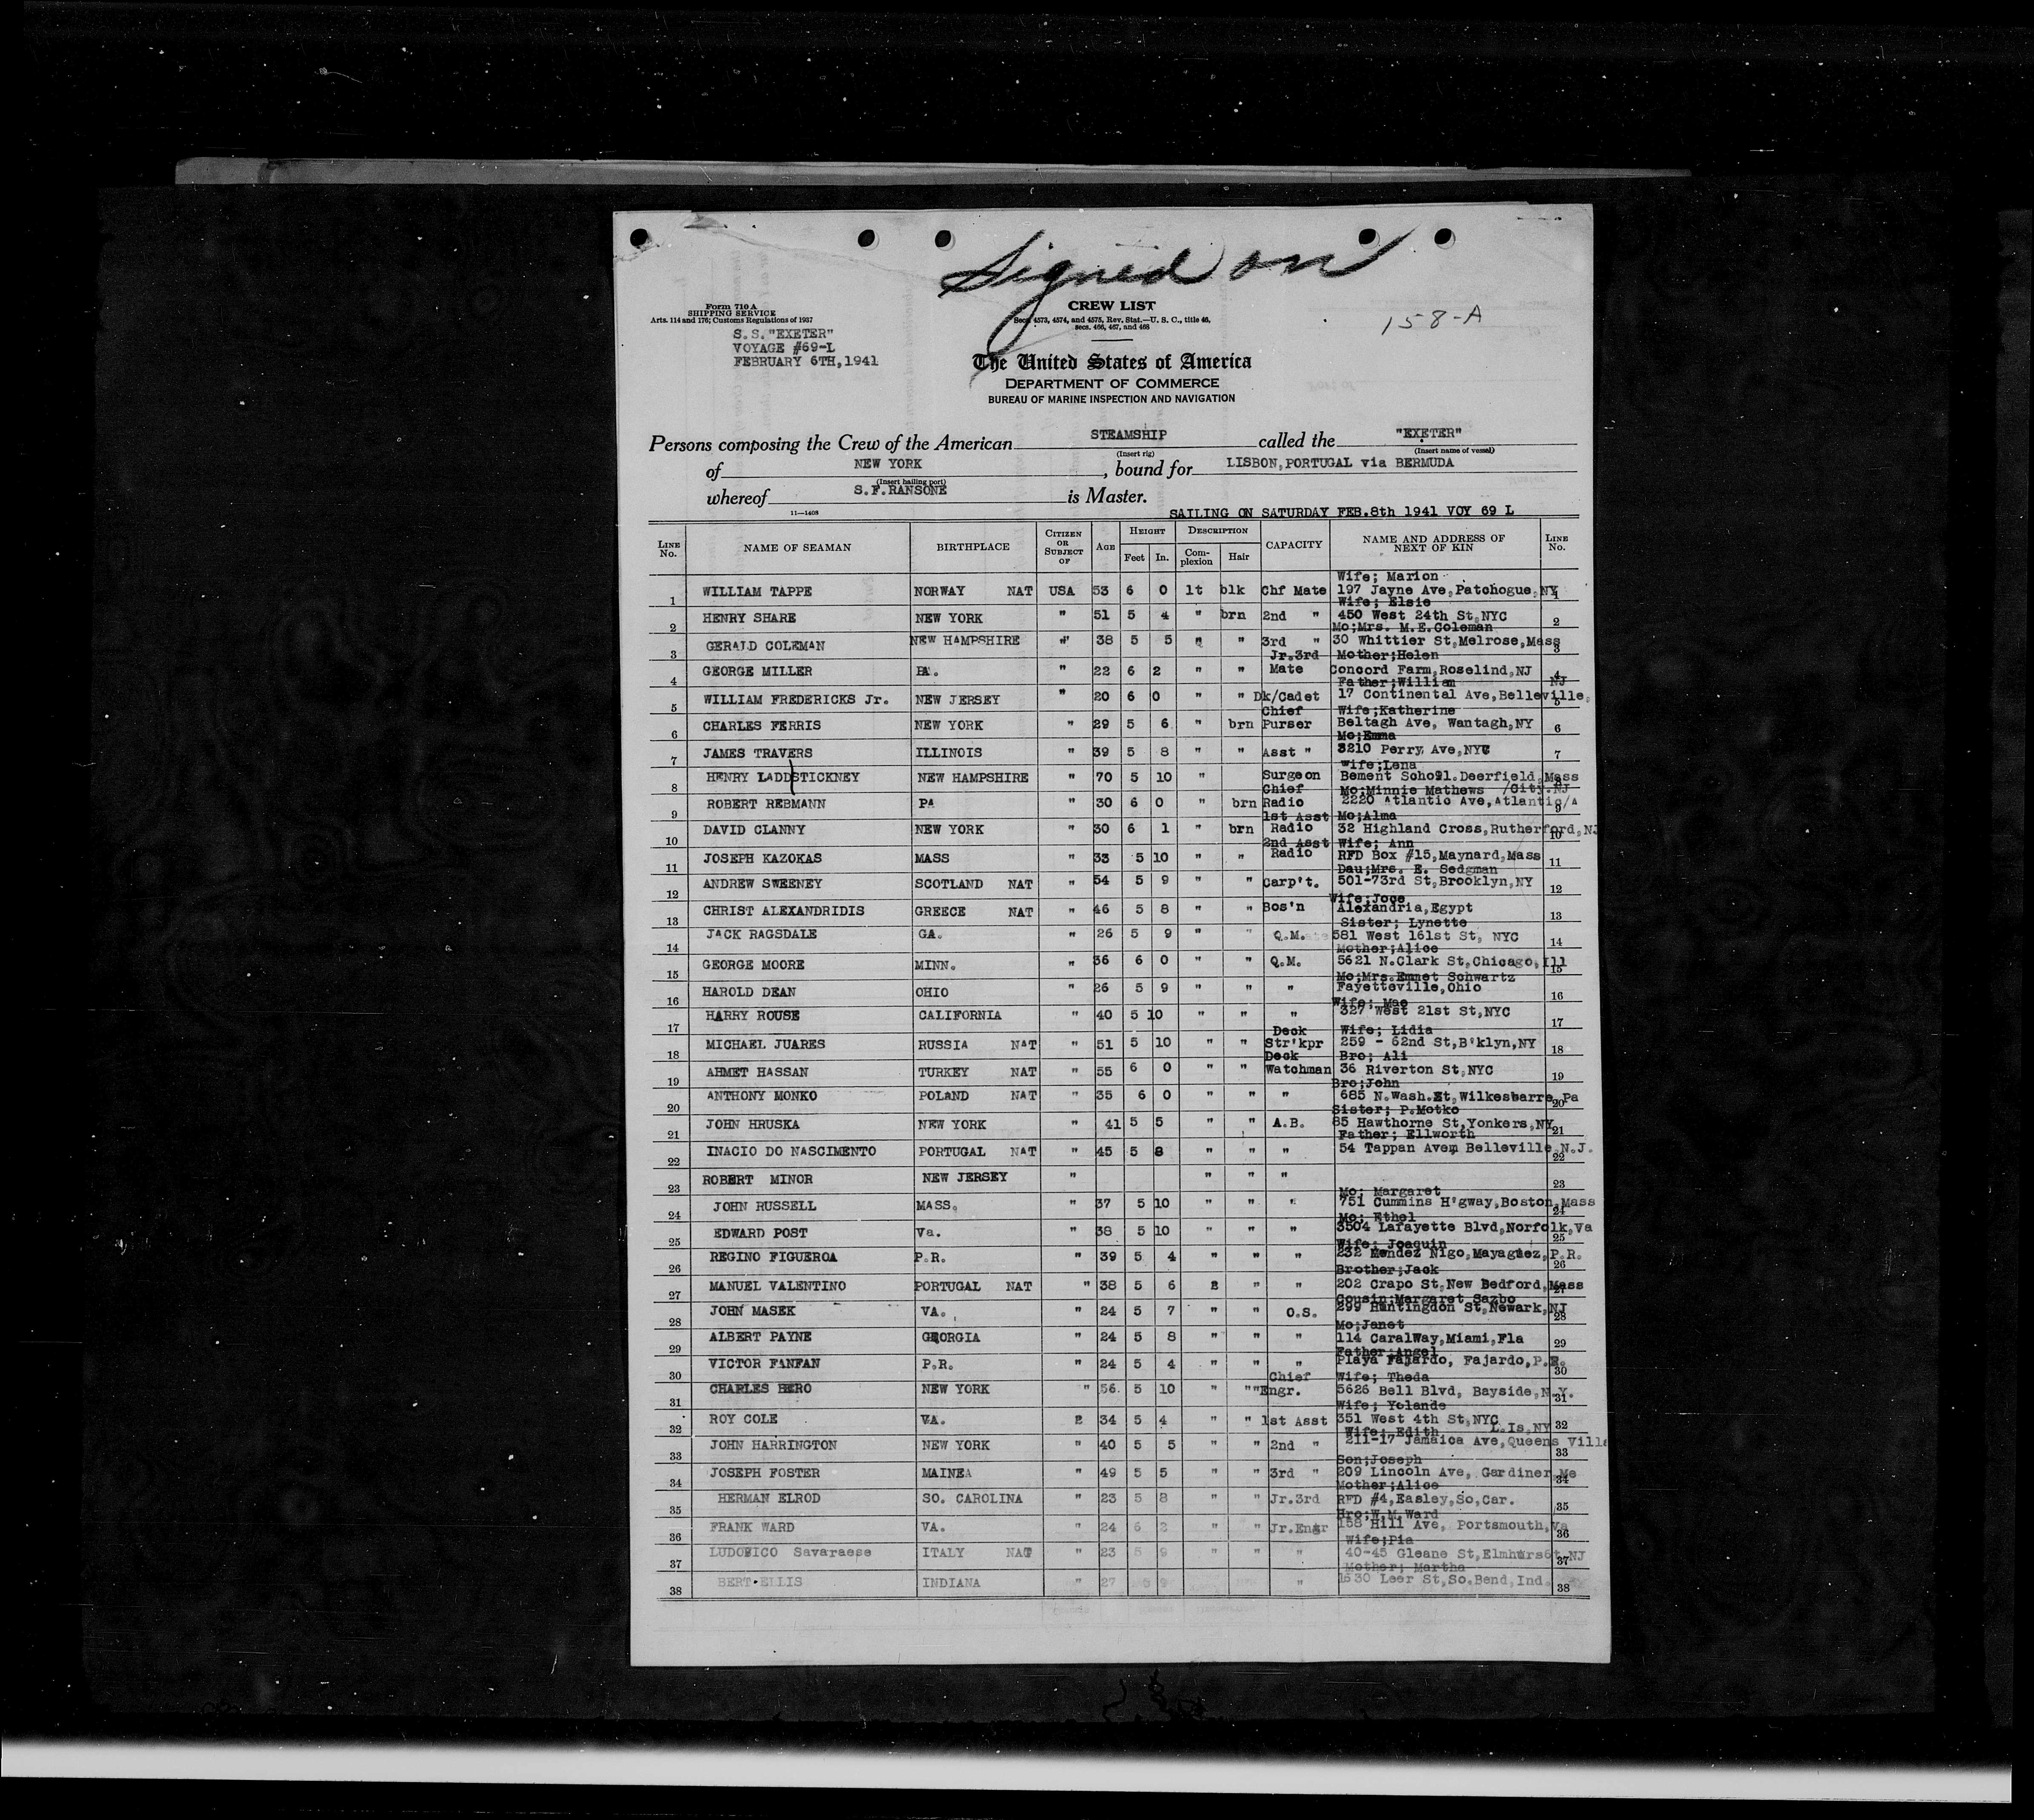 Signed on
Form 710 A
SHIPPING SERVICE
Arts. 114 and 176; Customs Regulations of 1937
S.S."EXETER"
VOYAGE #69-L
FEBRUARY 6TH,1941
CREW LIST
Secs. 4573, 4574, and 4575, Rev. Stat.—U. S. C., title 46,
secs. 466, 467, and 468
158-A
The United States of America
DEPARTMENT OF COMMERCE
BUREAU OF MARINE INSPECTION AND NAVIGATION
Persons composing the Crew of the American STEAMSHIP called the "EXETER"
(Insert rig) (Insert name of vessel)
of NEW YORK, bound for LISBON,PORTUGAL via BERMUDA
(Insert hailing port)
whereof S.F.RANSONE is Master.
11—1408
SAILING ON SATURDAY FEB.8th 1941 VOY 69 L
LINE No. NAME OF SEAMAN BIRTHPLACE CITIZEN OR SUBJECT OF AGE HEIGHT Feet In. DESCRIPTION Complexion Hair CAPACITY NAME AND ADDRESS OF NEXT OF KIN LINE No.
Wife; Marion
1 WILLIAM TAPPE NORWAY NAT USA 53 6 0 lt blk Chf Mate 197 Jayne Ave,Patchogue,NY 1
Wife; Elsie
2 HENRY SHARE NEW YORK " 51 5 4 " brn 2nd " 450 West 24th St,NYC 2
Mo;Mrs. M.E.Coleman
3 GERALD COLEMAN NEW HAMPSHIRE " 38 5 5 " " 3rd " 30 Whittier St,Melrose,Mass 3
Jr.3rd Mother;Helen
4 GEORGE MILLER PA. " 22 6 2 " " Mate Concord Farm,Roselind,NJ 4
Father;William NJ
5 WILLIAM FREDERICKS Jr. NEW JERSEY " 20 6 0 " " Dk/Cadet 17 Continental Ave,Belleville, 5
Chief Wife;Katherine
6 CHARLES FERRIS NEW YORK " 29 5 6 " brn Purser Beltagh Ave, Wantagh,NY 6
Mo;Emma
7 JAMES TRAVERS ILLINOIS " 39 5 8 " " Asst " 3210 Perry Ave,NYC 7
Wife;Lena
8 HENRY LADDSTICKNEY NEW HAMPSHIRE " 70 5 10 " Surgeon Bement School.Deerfield,Mass 8
Chief Mo;Minnie Mathews /City.NJ
9 ROBERT REBMANN PA " 30 6 0 " brn Radio 2220 Atlantic Ave,Atlantic/A 9
1st Asst Mo;Alma
10 DAVID CLANNY NEW YORK " 30 6 1 " brn Radio 32 Highland Cross,Rutherford,NJ 10
2nd Asst Wife; Ann
11 JOSEPH KAZOKAS MASS " 33 5 10 " " Radio RFD Box #15,Maynard,Mass 11
Dau;Mrs. E. Sedgman
12 ANDREW SWEENEY SCOTLAND NAT " 54 5 9 " " Carp't. 501-73rd St,Brooklyn,NY 12
Wife;Joce
13 CHRIST ALEXANDRIDIS GREECE NAT " 46 5 8 " " Bos'n Alexandria,Egypt 13
Sister; Lynette
14 JACK RAGSDALE GA. " 26 5 9 " " Q.M. 581 West 161st St, NYC 14
Mother;Alice
15 GEORGE MOORE MINN. " 36 6 0 " " Q.M. 5621 N.Clark St,Chicago,Ill 15
Mo;Mrs.Emmet Schwartz
16 HAROLD DEAN OHIO " 26 5 9 " " " Fayetteville,Ohio 16
Wife; Mae
17 HARRY ROUSE CALIFORNIA " 40 5 10 " " " 327 West 21st St,NYC 17
Deck Wife; Lidia
18 MICHAEL JUARES RUSSIA NAT " 51 5 10 " " Str'kpr 259 - 62nd St,B'klyn,NY 18
Deck Bro; Ali
19 AHMET HASSAN TURKEY NAT " 55 6 0 " " Watchman 36 Riverton St,NYC 19
Bro;John
20 ANTHONY MONKO POLAND NAT " 35 6 0 " " " 685 N.Wash.St,Wilkesbarre,Pa 20
Sister; P.Motko
21 JOHN HRUSKA NEW YORK " 41 5 5 " " A.B. 85 Hawthorne St,Yonkers,NY 21
Father; Ellworth
22 INACIO DO NASCIMENTO PORTUGAL NAT " 45 5 8 " " " 54 Tappan Avem Belleville,N.J. 22
23 ROBERT MINOR NEW JERSEY " " " " 23
Mo; Margaret
24 JOHN RUSSELL MASS. " 37 5 10 " " " 751 Cummins H'gway,Boston,Mass 24
Mo; Ethel
25 EDWARD POST Va. " 38 5 10 " " " 3504 Lafayette Blvd,Norfolk,Va 25
Wife; Joaquin
26 REGINO FIGUEROA P.R. " 39 5 4 " " " 232 Mendez Nigo,Mayaguez,P.R. 26
Brother;Jack
27 MANUEL VALENTINO PORTUGAL NAT " 38 5 6 " " 202 Crapo St,New Bedford,Mass 27
Cousin;Margaret Sazbo
28 JOHN MASEK VA. " 24 5 7 " " O.S. 299 Huntingdon St,Newark,NJ 28
Mo;Janet
29 ALBERT PAYNE GEORGIA " 24 5 8 " " " 114 CaralWay,Miami,Fla 29
Father;Angel
30 VICTOR FANFAN P.R. " 24 5 4 " " " Playa Fajardo, Fajardo,P.R. 30
Chief Wife; Theda
31 CHARLES HERO NEW YORK " 56 5 10 " "" Engr. 5626 Bell Blvd, Bayside,N.Y. 31
Wife; Yolande
32 ROY COLE VA. 34 5 4 " " 1st Asst 351 West 4th St,NYC 32
Wife; Edith L.Is,NY
33 JOHN HARRINGTON NEW YORK " 40 5 5 " " 2nd " 211-17 Jamaica Ave,Queens Ville 33
Son;Joseph
34 JOSEPH FOSTER MAINEA " 49 5 5 " " 3rd " 209 Lincoln Ave, Gardiner,Me 34
Mother;Alice
35 HERMAN ELROD SO. CAROLINA " 23 5 8 " " Jr.3rd RFD #4,Easley,So,Car. 35
Bro;W.M.Ward
36 FRANK WARD VA. " 24 6 2 " " Jr.Engr 158 Hill Ave, Portsmouth,Va 36
Wife;Pia
37 LUDOVICO Savaraese ITALY NAT " 23 5 9 " " " 40-45 Gleane St,Elmhurst,NJ 37
Mother; Martha
38 BERT ELLIS INDIANA " 27 5 9 " 1530 Leer St,So.Bend,Ind. 38